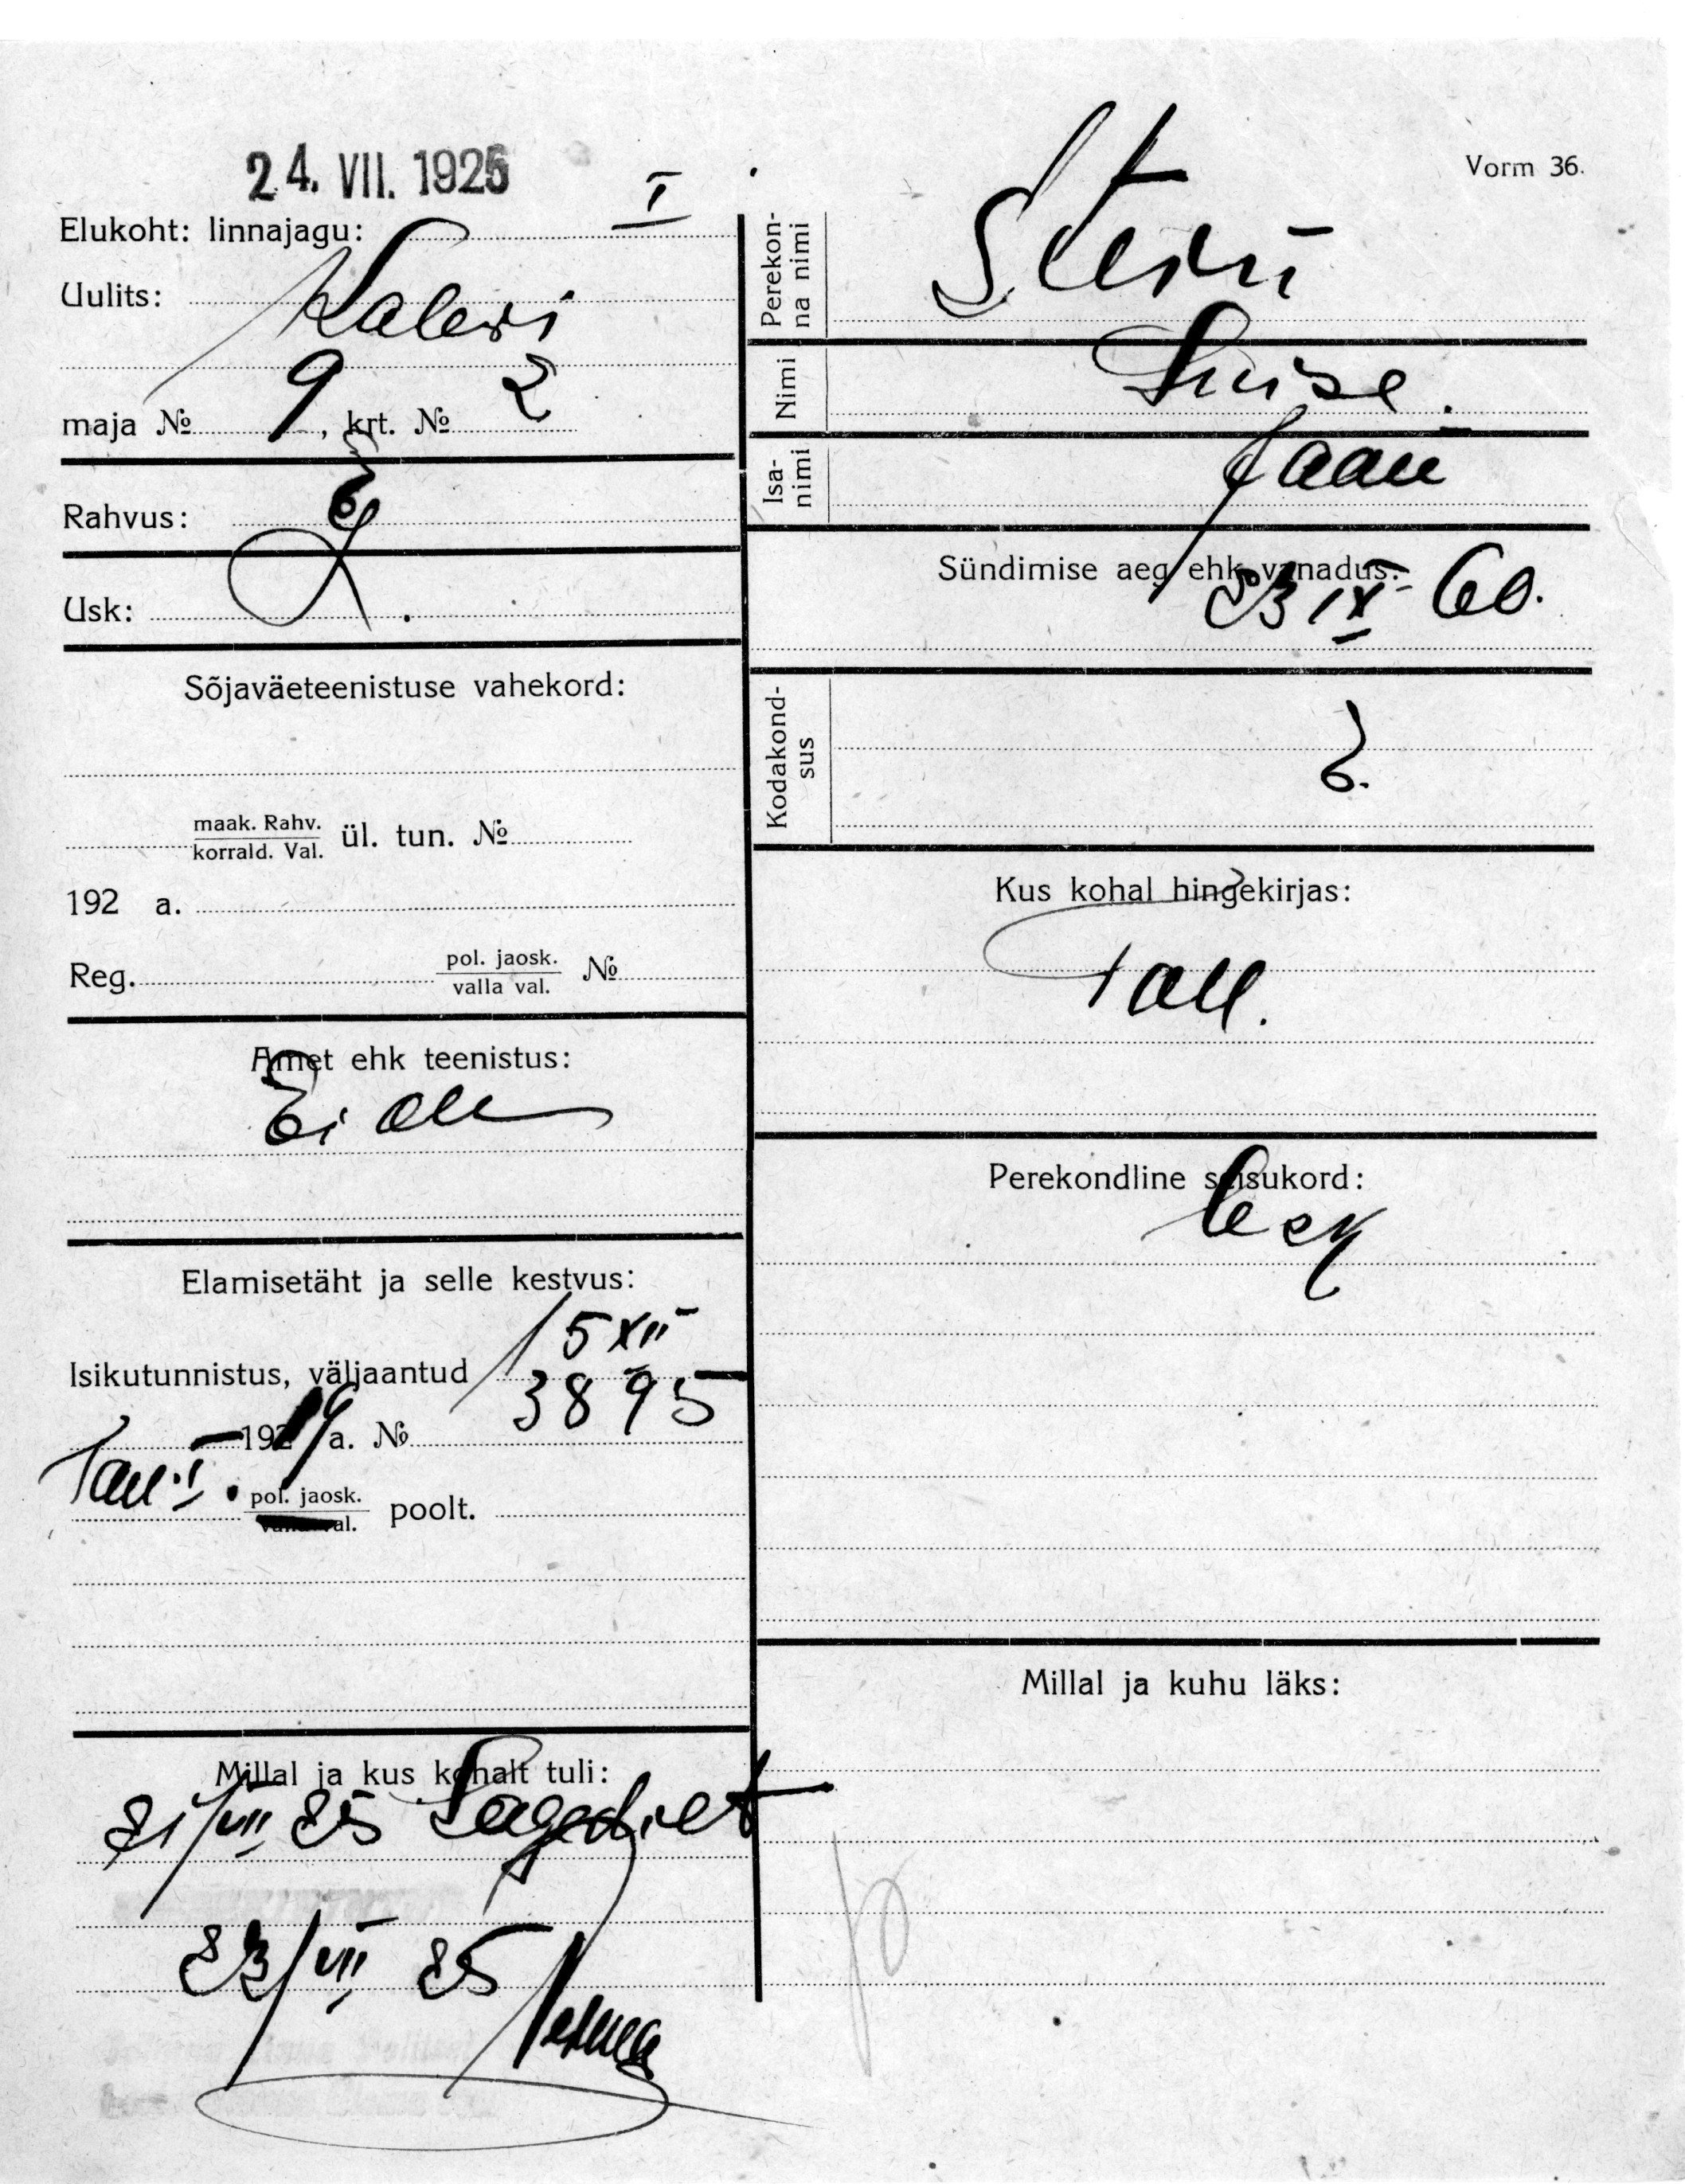 24. VII. 1925
Vorm 36.
Elukoht: linnajagu: I
Uulits: Kalevi
maja № 9, krt. № 2
Rahvus: E
Usk: L.
Sõjaväeteenistuse vahekord:
maak. Rahv.
korrald. Val. ül. tun. №
192 a.
Reg. pol. jaosk.
valla val. №
Amet ehk teenistus:
Ei ole
Elamisetäht ja selle kestvus:
15 XII
Isikutunnistus, väljaantud
1919 a. № 3895
Tall. I. pol. jaosk. poolt.
valla val.
Millal ja kus kohalt tuli:
21/VII 25 Lagedilt
23/VII 25
Perekonna nimi
Nimi Luise.
Isanimi Jaan
Sündimise aeg ehk vanadus:
23 IX 60.
Kodakondsus E.
Kus kohal hingekirjas:
Tall.
Perekondline seisukord:
lesk
Millal ja kuhu läks: